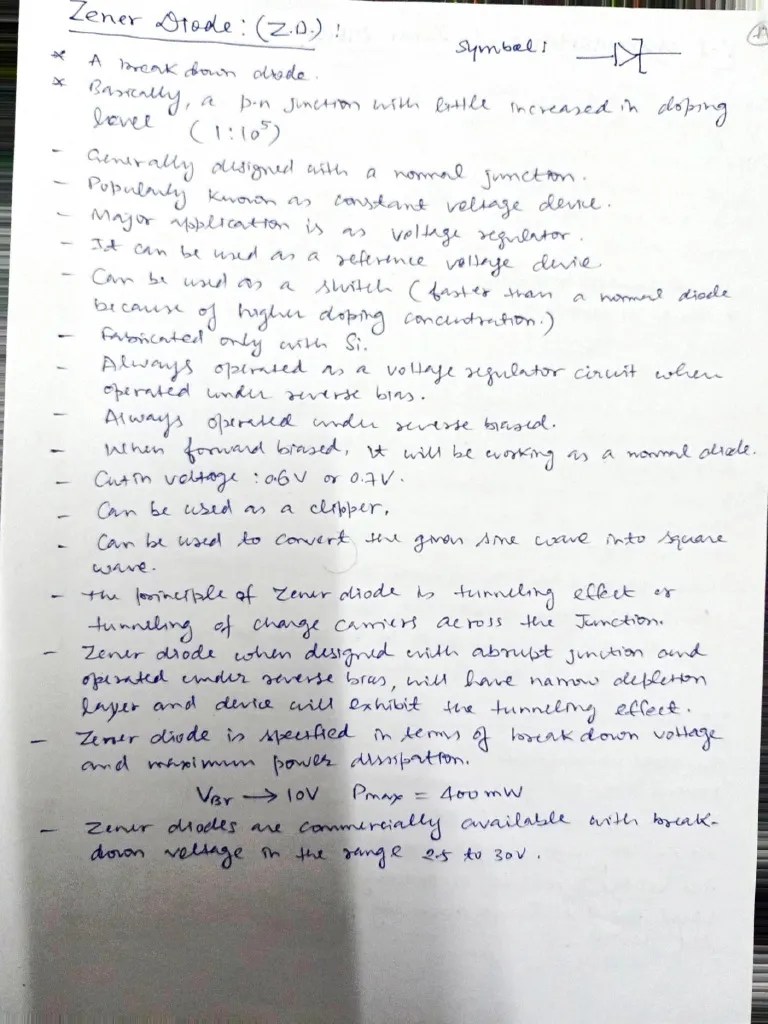 Zener Diode: (Z.D.):
Symbol:
* A break down diode.
* Basically, a p-n junction with little increased in doping
level (1:10⁵)
- Generally designed with a normal junction.
- Popularly known as constant voltage device.
- Major application is as voltage regulator.
- It can be used as a reference voltage device
- Can be used as a switch (faster than a normal diode
because of higher doping concentration.)
- Fabricated only with Si.
- Always operated as a voltage regulator circuit when
operated under reverse bias.
- Always operated under reverse biased.
- When forward biased, it will be working as a normal diode.
- Cutin voltage : 0.6V or 0.7V.
- Can be used as a clipper.
- Can be used to convert the given sine wave into square
wave.
- The principle of Zener diode is tunneling effect or
tunneling of charge carriers across the Junction.
- Zener diode when designed with abrupt junction and
operated under reverse bias, will have narrow depletion
layer and device will exhibit the tunneling effect.
- Zener diode is specified in terms of break down voltage
and maximum power dissipation.
VBr → 10V Pmax = 400mW
- Zener diodes are commercially available with break-
down voltage in the range 2.5 to 30V.